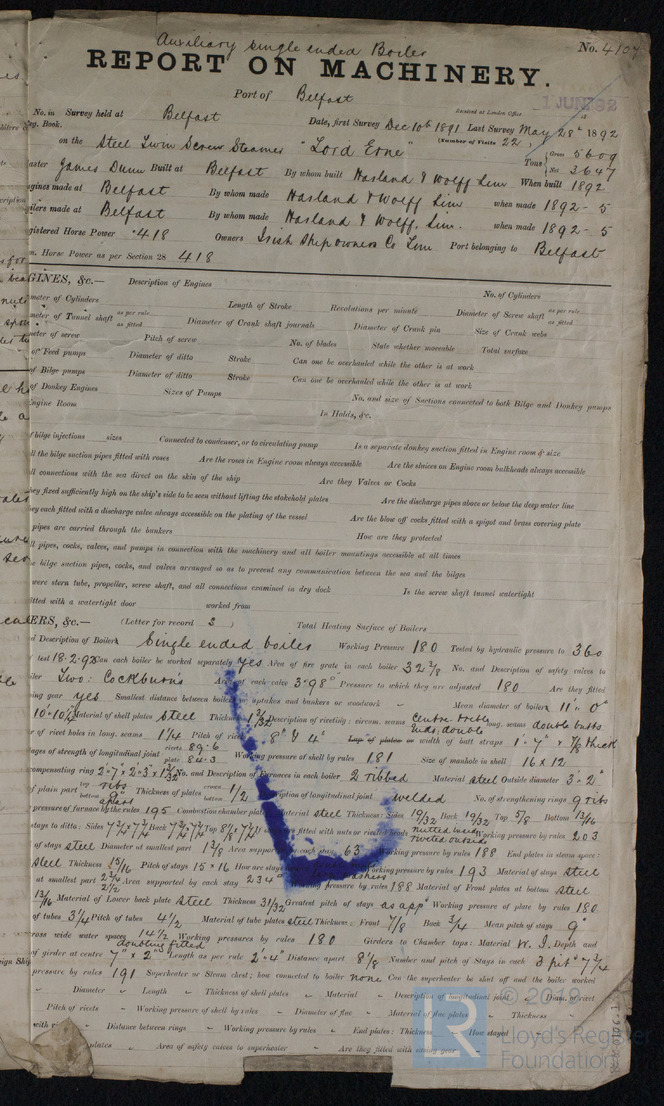 Auxiliary single ended Boiler
No. 4107
REPORT ON MACHINERY.
Port of Belfast
Received at London Office
1 JUN 92
No. in Survey held at Belfast Date, first Survey Dec 10th 1891 Last Survey May 28th 1892
Reg. Book. (Number of Visits 22
on the Steel Twin Screw Steamer "Lord Erne" Tons Gross 5609
Net 3647
Master James Dunn Built at Belfast By whom built Harland & Wolff Lim When built 1892
Engines made at Belfast By whom made Harland & Wolff Lim when made 1892 - 5
Boilers made at Belfast By whom made Harland & Wolff. Lim. when made 1892 - 5
Registered Horse Power 418 Owners Irish Shipowners Co Lim Port belonging to Belfast
Horse Power as per Section 28 418
GINES, &c.— Description of Engines No. of Cylinders
meter of Cylinders Length of Stroke Revolutions per minute Diameter of Screw shaft as per rule as fitted
meter of Tunnel shaft as per rule as fitted Diameter of Crank shaft journals Diameter of Crank pin Size of Crank webs
meter of screw Pitch of screw No. of blades State whether moveable Total surface
of Feed pumps Diameter of ditto Stroke Can one be overhauled while the other is at work
of Bilge pumps Diameter of ditto Stroke Can one be overhauled while the other is at work
of Donkey Engines Sizes of Pumps No. and size of Suctions connected to both Bilge and Donkey pumps
Engine Room In Holds, &c.
f bilge injections sizes Connected to condenser, or to circulating pump Is a separate donkey suction fitted in Engine room & size
ll the bilge suction pipes fitted with roses Are the roses in Engine room always accessible Are the sluices on Engine room bulkheads always accessible
ll connections with the sea direct on the skin of the ship Are they Valves or Cocks
hey fixed sufficiently high on the ship's side to be seen without lifting the stokehold plates Are the discharge pipes above or below the deep water line
hey each fitted with a discharge valve always accessible on the plating of the vessel Are the blow off cocks fitted with a spigot and brass covering plate
pipes are carried through the bunkers How are they protected
ll pipes, cocks, valves, and pumps in connection with the machinery and all boiler mountings accessible at all times
e bilge suction pipes, cocks, and valves arranged so as to prevent any communication between the sea and the bilges
were stern tube, propeller, screw shaft, and all connections examined in dry dock Is the screw shaft tunnel watertight
itted with a watertight door worked from
ERS, &c.— (Letter for record S ) Total Heating Surface of Boilers
d Description of Boilers Single ended boiler Working Pressure 180 Tested by hydraulic pressure to 360
test 18.2.92 Can each boiler be worked separately yes Area of fire grate in each boiler 32 7/8 No. and Description of safety valves to
iler Two: Cockburn's Area of each valve 3.98" Pressure to which they are adjusted 180 Are they fitted
ing gear yes Smallest distance between boilers or uptakes and bunkers or woodwork Mean diameter of boilers 11' 0"
Material of shell plates steel Thickness Description of riveting: circum. seams Centre treble Ends double long. seams double butts
of rivet holes in long. seams 1 1/4 Pitch of rivets 8" & 4" Lap of plates or width of butt straps 1'-7" x 7/8 thick
ages of strength of longitudinal joint rivets 89.6 plate 84.3 Working pressure of shell by rules 181 Size of manhole in shell 16 x 12
compensating ring No. and Description of Furnaces in each boiler 2 ribbed Material steel Outside diameter 3'.2"
of plain part top ribs bottom 9" apart Thickness of plates crown bottom 1/2 Description of longitudinal joint welded No. of strengthening rings 9 ribs
pressure of furnace by the rules 195 Combustion chamber plates: Material steel Thickness: Sides 19/32 Back 19/32 Top 5/8 Bottom 13/16
stays to ditto: Sides 7 3/4 x 7 3/4 Back 7 3/4 x 7 3/4 Top fitted with nuts or riveted heads nutted inside riveted outside Working pressure by rules 203
of stays steel Diameter at smallest part 1 3/8 Area supported by each stay 63 Working pressure by rules 188 End plates in steam space:
steel Thickness 15/16 Pitch of stays 15 x 16 How are stays working pressure by rules 193 Material of stays steel
at smallest part 2 3/4 2 1/2 Area supported by each stay 234 Working pressure by rules 188 Material of Front plates at bottom steel
13/16 Material of Lower back plate steel Thickness 31/32 Greatest pitch of stays as appd Working pressure of plate by rules 180
of tubes 3 1/4 Pitch of tubes 4 1/2 Material of tube plates steel Thickness: Front 7/8 Back 3/4 Mean pitch of stays 9"
ross wide water spaces 14 1/2 Working pressures by rules 180 Girders to Chamber tops: Material W. I. Depth and
doubling fitted
of girder at centre 7" x 2" Length as per rule 2'.4" Distance apart 8 1/8 Number and pitch of Stays in each 3 pit 7 3/4
pressure by rules 191 Superheater or Steam chest; how connected to boiler none Can the superheater be shut off and the boiler worked
Diameter Length Thickness of shell plates Material Description of longitudinal joint Diam. of rivet
Pitch of rivets Working pressure of shell by rules Diameter of flue Material of flue plates Thickness
with r Distance between rings Working pressure by rules End plates: Thickness How stayed
plates Area of safety valves to superheater Are they fitted with easing gear
© 2018
Lloyd's Register
Foundation